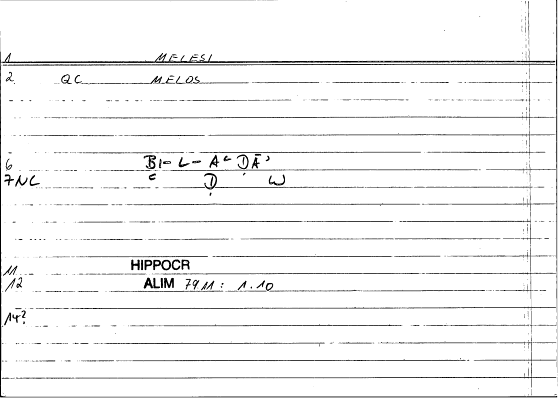 1 MELESI
2 QC MELOS
6
7 NC
11 HIPPOCR
12 ALIM 79 M: 1.10
14?